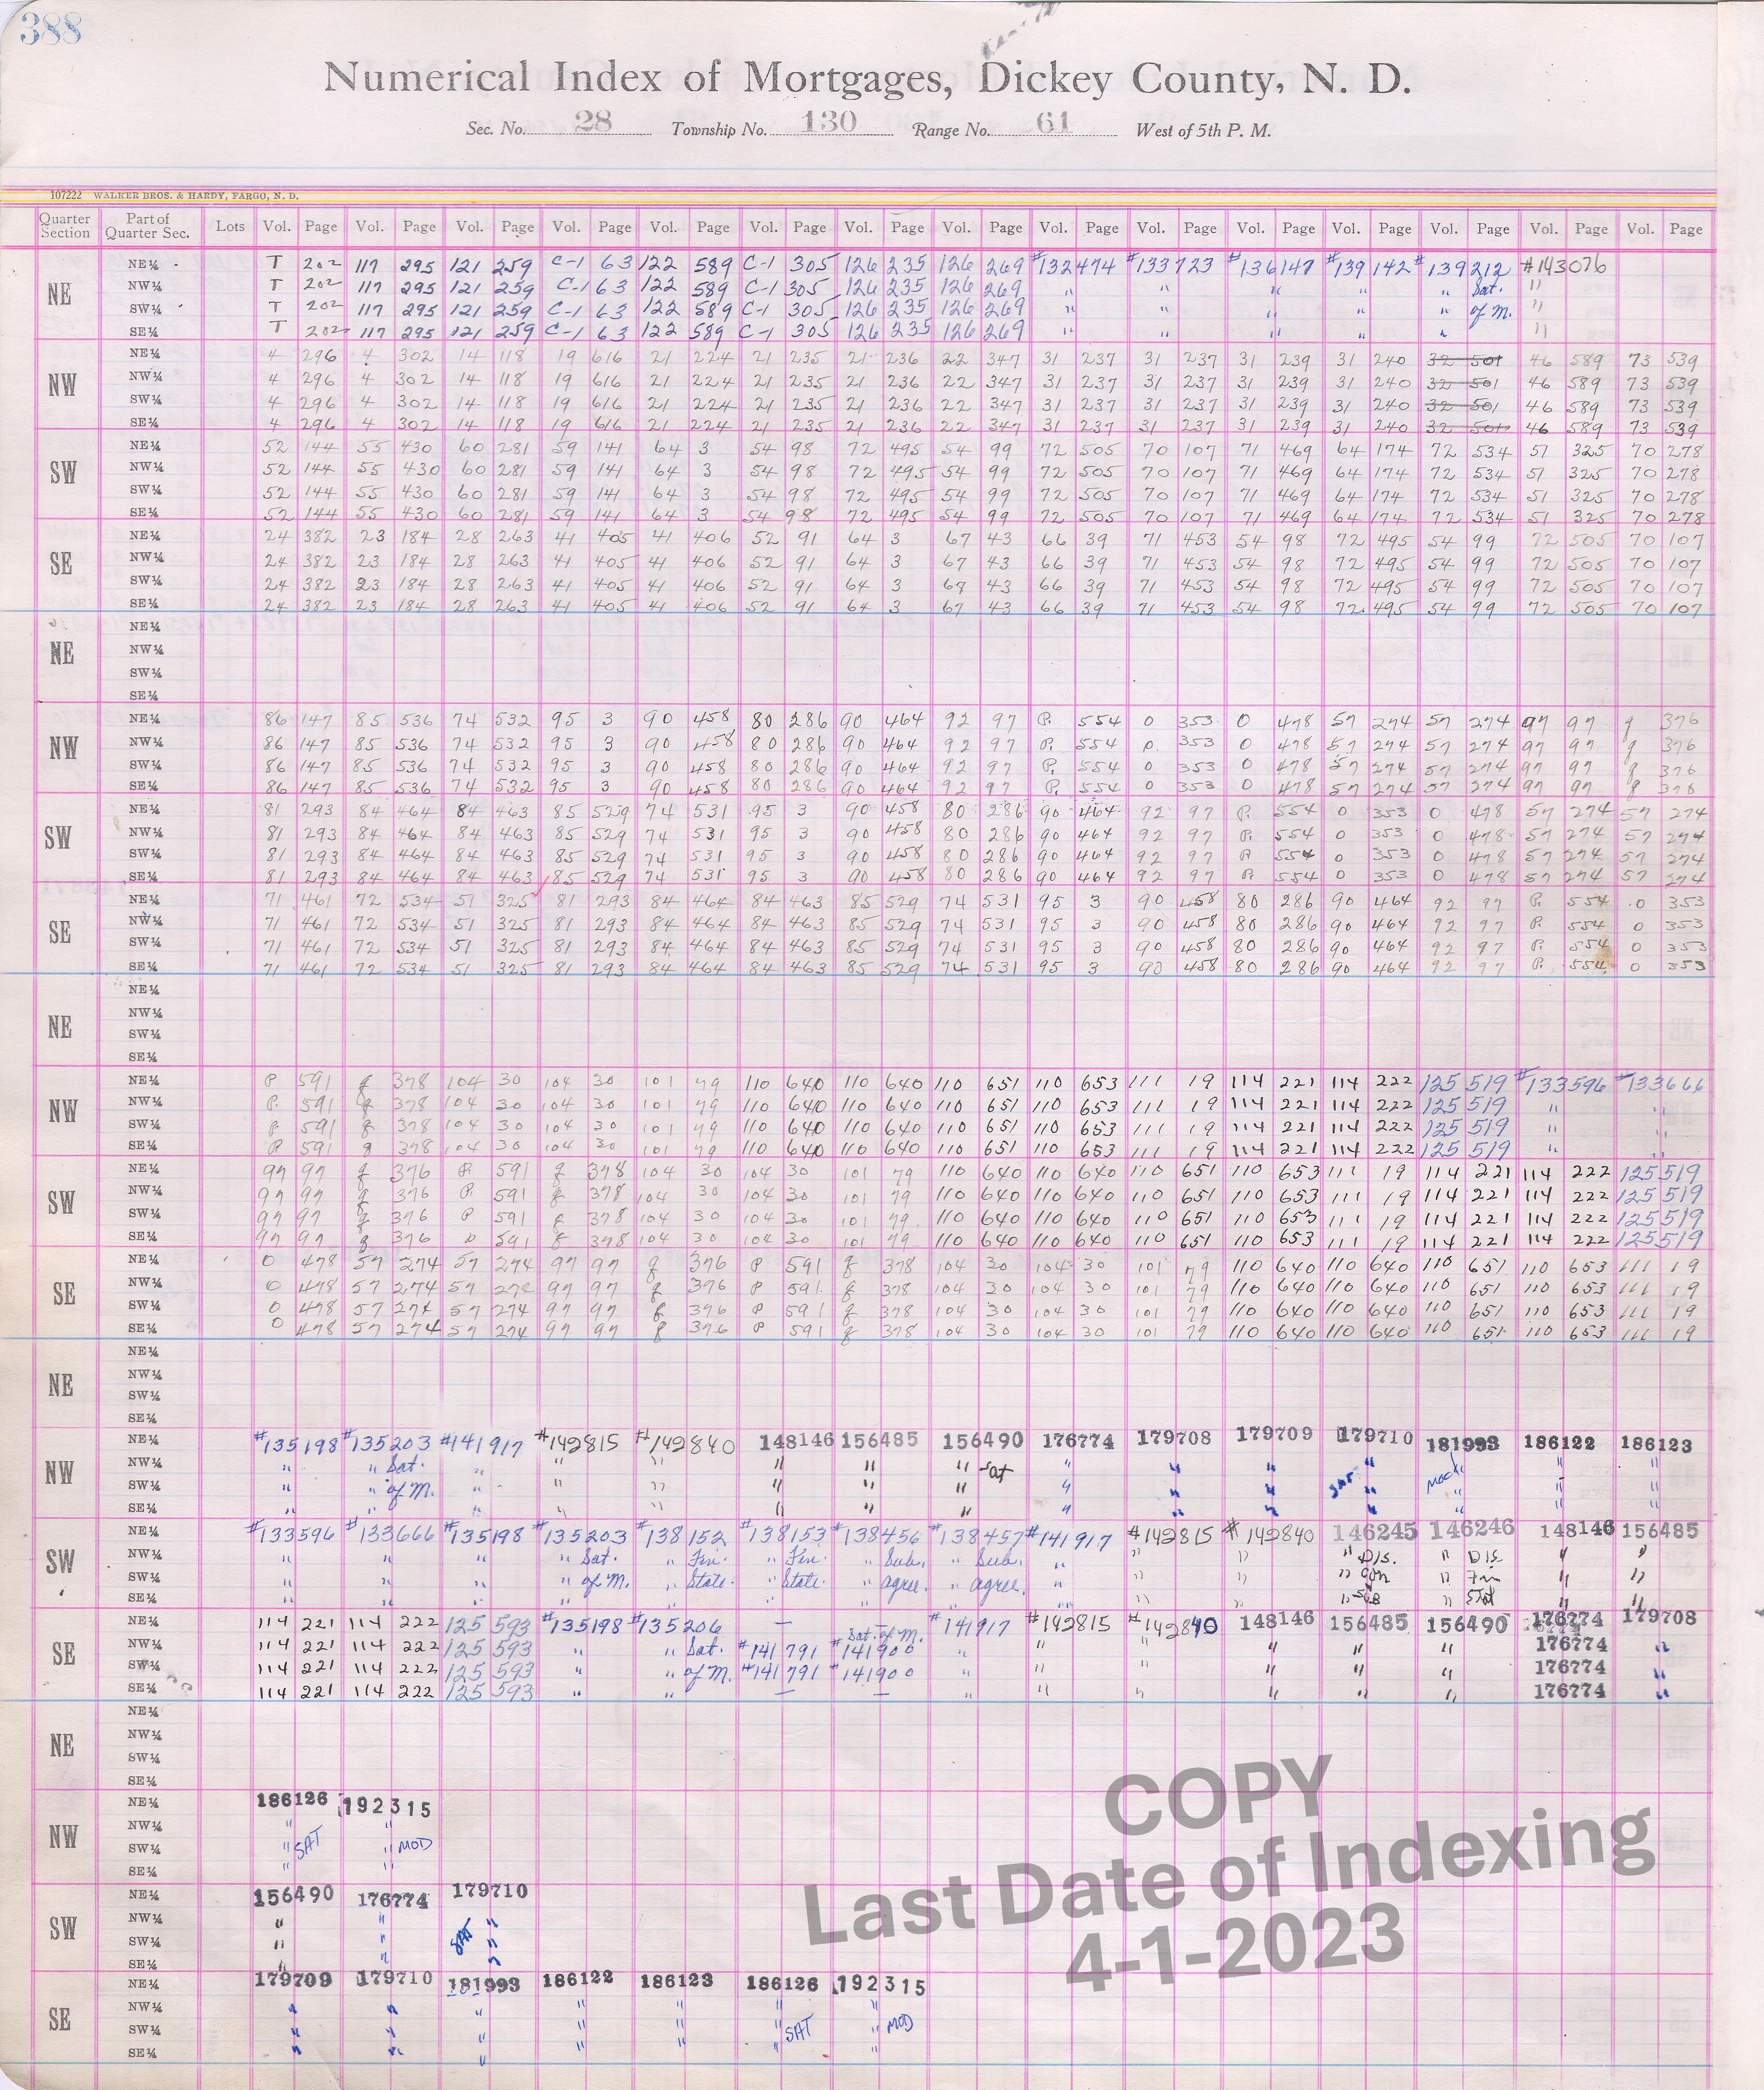 388
Numerical Index of Mortgages, Dickey County, N. D.
Sec. No. 28 Township No. 130 Range No. 61 West of 5th P. M.
107222 WALKER BROS. & HARDY, FARGO, N. D.
Quarter Section Part of Quarter Sec. Lots Vol. Page Vol. Page Vol. Page Vol. Page Vol. Page Vol. Page Vol. Page Vol. Page Vol. Page Vol. Page Vol. Page Vol. Page Vol. Page Vol. Page Vol. Page
NE
NE¼ T 202 117 295 121 259 C-1 63 122 589 C-1 305 126 235 126 269 #132474 #133723 #136147 #139142 #139212 #143076
NW¼ T 202 117 295 121 259 C-1 63 122 589 C-1 305 126 235 126 269 " " " " " Sat. "
SW¼ T 202 117 295 121 259 C-1 63 122 589 C-1 305 126 235 126 269 " " " " " of M. "
SE¼ T 202 117 295 121 259 C-1 63 122 589 C-1 305 126 235 126 269 " " " " " "
NW
NE¼ 4 296 4 302 14 118 19 616 21 224 21 235 21 236 22 347 31 237 31 237 31 239 31 240 32 501 46 589 73 539
NW¼ 4 296 4 302 14 118 19 616 21 224 21 235 21 236 22 347 31 237 31 237 31 239 31 240 32 501 46 589 73 539
SW¼ 4 296 4 302 14 118 19 616 21 224 21 235 21 236 22 347 31 237 31 237 31 239 31 240 32 501 46 589 73 539
SE¼ 4 296 4 302 14 118 19 616 21 224 21 235 21 236 22 347 31 237 31 237 31 239 31 240 32 501 46 589 73 539
SW
NE¼ 52 144 55 430 60 281 59 141 64 3 54 98 72 495 54 99 72 505 70 107 71 469 64 174 72 534 51 325 70 278
NW¼ 52 144 55 430 60 281 59 141 64 3 54 98 72 495 54 99 72 505 70 107 71 469 64 174 72 534 51 325 70 278
SW¼ 52 144 55 430 60 281 59 141 64 3 54 98 72 495 54 99 72 505 70 107 71 469 64 174 72 534 51 325 70 278
SE¼ 52 144 55 430 60 281 59 141 64 3 54 98 72 495 54 99 72 505 70 107 71 469 64 174 72 534 51 325 70 278
SE
NE¼ 24 382 23 184 28 263 41 405 41 406 52 91 64 3 67 43 66 39 71 453 54 98 72 495 54 99 72 505 70 107
NW¼ 24 382 23 184 28 263 41 405 41 406 52 91 64 3 67 43 66 39 71 453 54 98 72 495 54 99 72 505 70 107
SW¼ 24 382 23 184 28 263 41 405 41 406 52 91 64 3 67 43 66 39 71 453 54 98 72 495 54 99 72 505 70 107
SE¼ 24 382 23 184 28 263 41 405 41 406 52 91 64 3 67 43 66 39 71 453 54 98 72 495 54 99 72 505 70 107
NE
NE¼
NW¼
SW¼
SE¼
NW
NE¼ 86 147 85 536 74 532 95 3 90 458 80 286 90 464 92 97 P. 554 0 353 0 478 57 274 57 274 97 97 g 376
NW¼ 86 147 85 536 74 532 95 3 90 458 80 286 90 464 92 97 P. 554 0 353 0 478 57 274 57 274 97 97 g 376
SW¼ 86 147 85 536 74 532 95 3 90 458 80 286 90 464 92 97 P. 554 0 353 0 478 57 274 57 274 97 97 g 376
SE¼ 86 147 85 536 74 532 95 3 90 458 80 286 90 464 92 97 P. 554 0 353 0 478 57 274 57 274 97 97 g 378
SW
NE¼ 81 293 84 464 84 463 85 529 74 531 95 3 90 458 80 286 90 464 92 97 P. 554 0 353 0 478 57 274 57 274
NW¼ 81 293 84 464 84 463 85 529 74 531 95 3 90 458 80 286 90 464 92 97 P. 554 0 353 0 478 57 274 57 274
SW¼ 81 293 84 464 84 463 85 529 74 531 95 3 90 458 80 286 90 464 92 97 P 554 0 353 0 478 57 274 57 274
SE¼ 81 293 84 464 84 463 85 529 74 531 95 3 90 458 80 286 90 464 92 97 P. 554 0 353 0 478 57 274 57 274
SE
NE¼ 71 461 72 534 51 325 81 293 84 464 84 463 85 529 74 531 95 3 90 458 80 286 90 464 92 97 P. 554 0 353
NW¼ 71 461 72 534 51 325 81 293 84 464 84 463 85 529 74 531 95 3 90 458 80 286 90 464 92 97 P. 554 0 353
SW¼ 71 461 72 534 51 325 81 293 84 464 84 463 85 529 74 531 95 3 90 458 80 286 90 464 92 97 P. 554 0 353
SE¼ 71 461 72 534 51 325 81 293 84 464 84 463 85 529 74 531 95 3 90 458 80 286 90 464 92 97 P. 554 0 353
NE
NE¼
NW¼
SW¼
SE¼
NW
NE¼ P 591 g 378 104 30 104 30 101 79 110 640 110 640 110 651 110 653 111 19 114 221 114 222 125 519 #133596 #133666
NW¼ P. 591 g 378 104 30 104 30 101 79 110 640 110 640 110 651 110 653 111 19 114 221 114 222 125 519 " "
SW¼ P 591 g 378 104 30 104 30 101 79 110 640 110 640 110 651 110 653 111 19 114 221 114 222 125 519 " "
SE¼ P 591 g 378 104 30 104 30 101 79 110 640 110 640 110 651 110 653 111 19 114 221 114 222 125 519 " "
SW
NE¼ 97 97 g 376 P. 591 g 378 104 30 104 30 101 79 110 640 110 640 110 651 110 653 111 19 114 221 114 222 125 519
NW¼ 97 97 g 376 P. 591 g 378 104 30 104 30 101 79 110 640 110 640 110 651 110 653 111 19 114 221 114 222 125 519
SW¼ 97 97 g 376 P 591 g 378 104 30 104 30 101 79 110 640 110 640 110 651 110 653 111 19 114 221 114 222 125 519
SE¼ 97 97 g 376 P 591 g 378 104 30 104 30 101 79 110 640 110 640 110 651 110 653 111 19 114 221 114 222 125 519
SE
NE¼ 0 478 57 274 57 274 97 97 g 376 P 591 g 378 104 30 104 30 101 79 110 640 110 640 110 651 110 653 111 19
NW¼ 0 478 57 274 57 274 97 97 g 376 P 591 g 378 104 30 104 30 101 79 110 640 110 640 110 651 110 653 111 19
SW¼ 0 478 57 274 57 274 97 97 g 376 P 591 g 378 104 30 104 30 101 79 110 640 110 640 110 651 110 653 111 19
SE¼ 0 478 57 274 57 274 97 97 g 376 P 591 g 378 104 30 104 30 101 79 110 640 110 640 110 651 110 653 111 19
NE
NE¼
NW¼
SW¼
SE¼
NW
NE¼ #135198 #135203 #141917 #142815 #142840 148146 156485 156490 176774 179708 179709 179710 181993 186122 186123
NW¼ " " Sat. " " " " " " Sat " " " " " " "
SW¼ " " of M. " " " " " " " " " " " " "
SE¼ " " " " " " " " " " " " " " "
SW
NE¼ #133596 #133666 #135198 #135203 #138152 #138153 #138456 #138457 #141917 #142815 #142840 146245 146246 148146 156485
NW¼ " " " " Sat. " Fin. " Fin. " Sub. " Sub. " " " " Dis. " Dis " "
SW¼ " " " " of M. " State. " State. " agree. " agree. " " " " Fin " Fin " "
SE¼ " " " " " " " " " " " " " Stat " "
SE
NE¼ 114 221 114 222 125 593 #135198 #135206 — Sat. of M. #141917 #142815 #142840 148146 156485 156490 176774 179708
NW¼ 114 221 114 222 125 593 " " Sat. #141791 #141900 " " " " " " 176774 "
SW¼ 114 221 114 222 125 593 " " of M. #141791 #141900 " " " " " " 176774 "
SE¼ 114 221 114 222 125 593 " " — — " " " " " " 176774 "
NE
NE¼
NW¼
SW¼
SE¼
NW
NE¼ 186126 192315
NW¼ " "
SW¼ " SAT " MOD
SE¼ " "
SW
NE¼ 156490 176774 179710
NW¼ " " "
SW¼ " " SAT "
SE¼ " " "
SE
NE¼ 179709 179710 181993 186122 186123 186126 192315
NW¼ " " " " " " "
SW¼ " " " " " " SAT " MOD
SE¼ " " " " " " "
COPY
Last Date of Indexing
4-1-2023